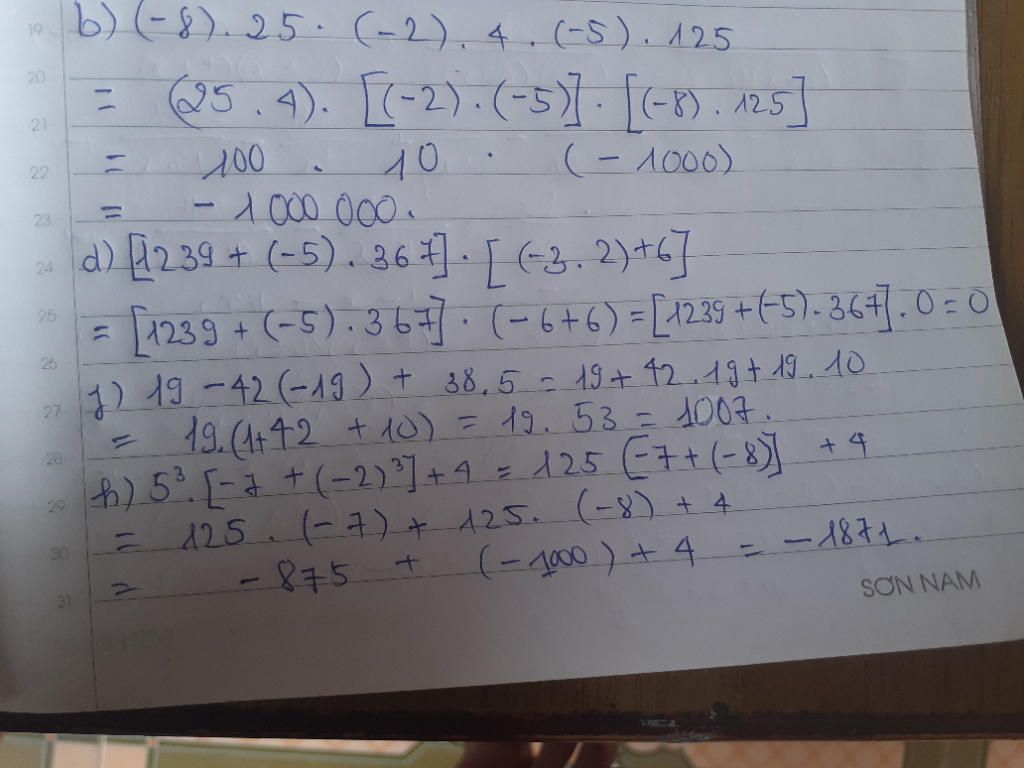 19 b) (-8). 25. (-2). 4. (-5). 125
20 = (25.4). [(-2).(-5)].[(-8).125]
21
22 = 100 . 10 . (-1000)
23 = -1000 000.
24 d) [1239+(-5).367].[(-3.2)+6]
25 = [1239+(-5).367].(-6+6)=[1239+(-5).367].0=0
26 f) 19-42(-19)+ 38.5 = 19+42.19+19.10
27 = 19.(1+42+10) = 19.53 = 1007.
28 h) 5³.[-7+(-2)³]+4 = 125[-7+(-8)] +4
29 = 125.(-7)+ 125.(-8)+4
30 = -875 + (-1000)+4 = -1871.
31
SƠN NAM